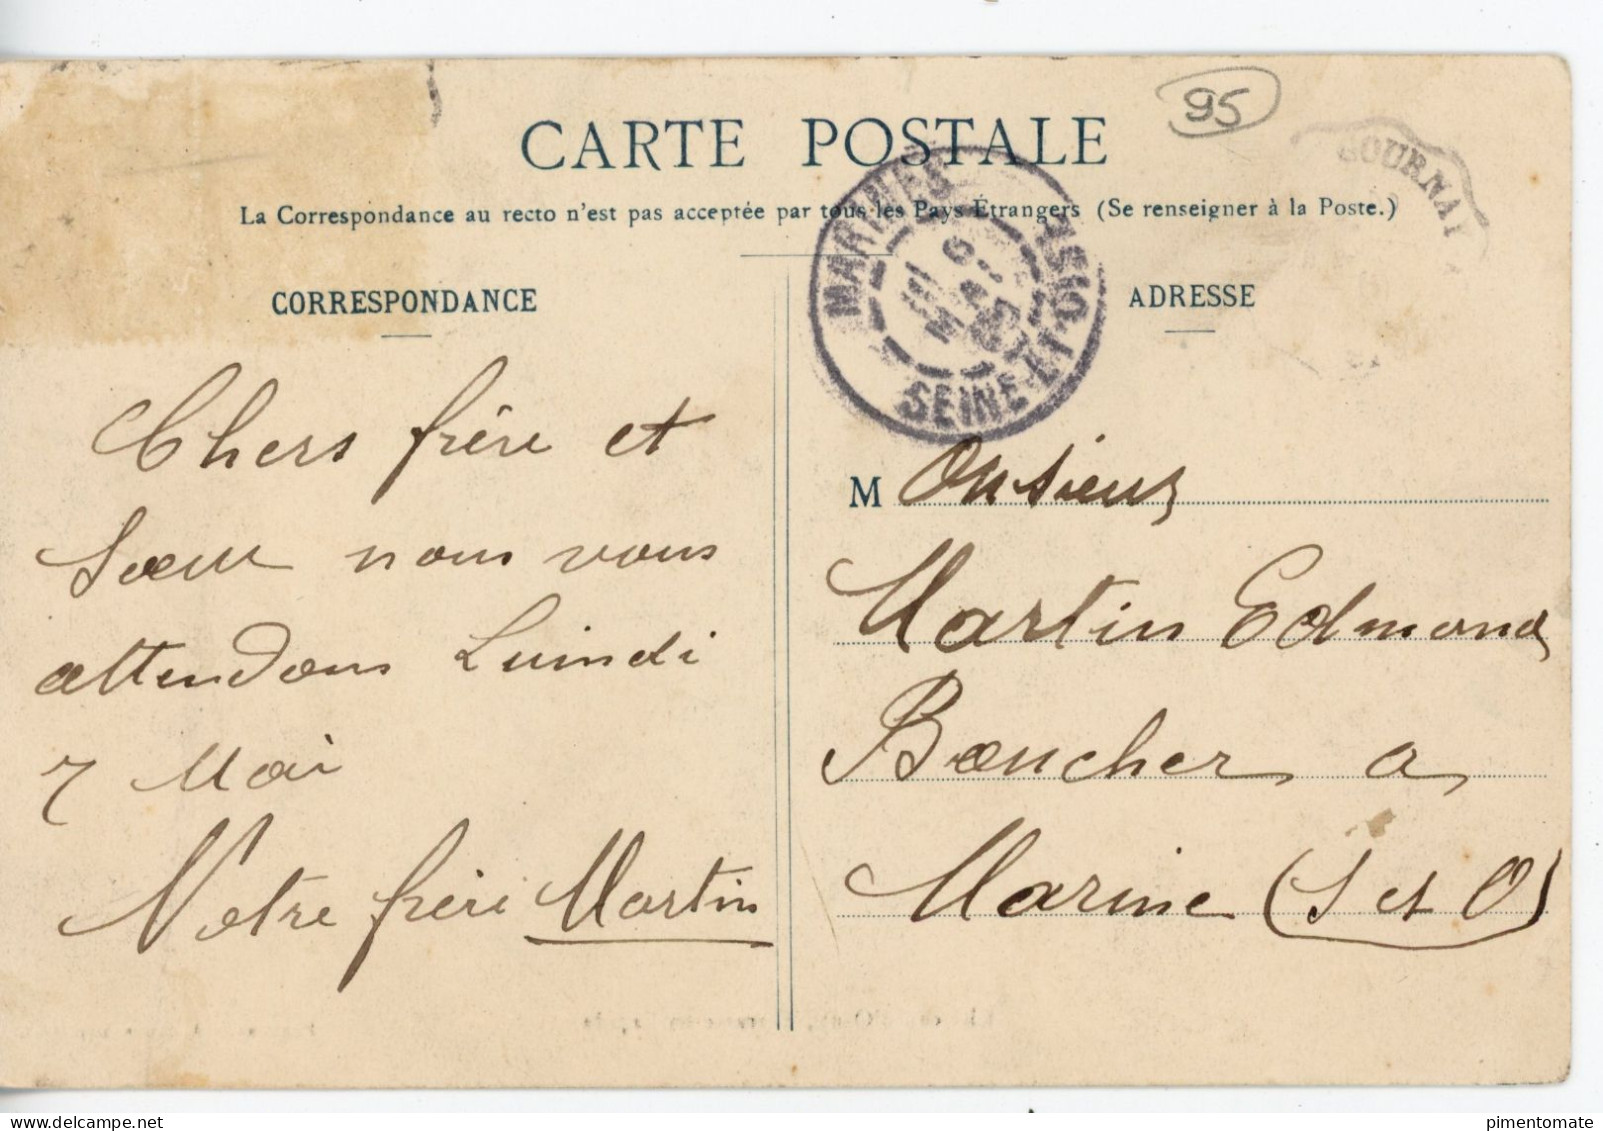 95
CARTE POSTALE
GOURNAY
La Correspondance au recto n'est pas acceptée par tous les Pays Étrangers (Se renseigner à la Poste.)
MARINES
6
MAI
SEINE-ET-OISE
CORRESPONDANCE
ADRESSE
Chers frère et
Sœur nous vous
attendons Luindi
7 Mai
Votre frère Martin
Monsieur
Martin Edmond
Boucher a
Marine (S et O)
pimentomate